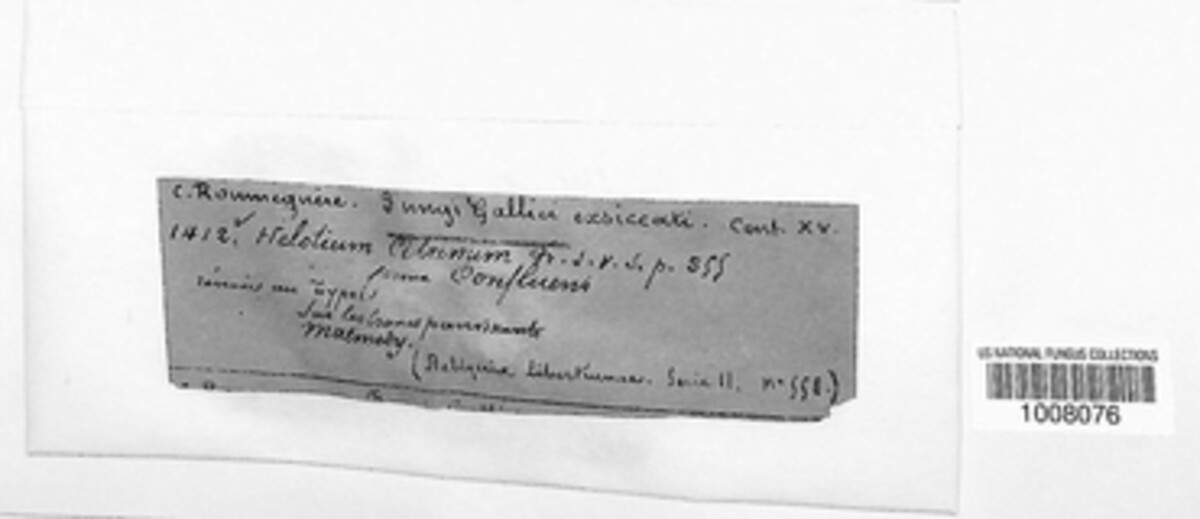 C. Roumeguère. Fungi Gallici exsiccati. Cent. XV.
1412. Helotium Citrinum Fr. S. V. S. p. 355
forma Confluens
au Type
Sur les troncs pourrissants
Malmedy.
(Reliquiæ Libertianae. Serie II. n° 558.)
US NATIONAL FUNGUS COLLECTIONS
1008076